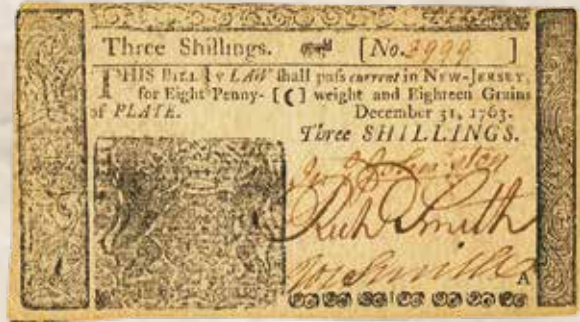 Three Shillings. [No. 3999 ]
THIS BILL by LAW shall pass current in NEW-JERSEY,
for Eight Penny- [ ( ] weight and Eighteen Grains
of PLATE. December 31, 1763.
Three SHILLINGS.
Richd Smith
Jos Smith
A